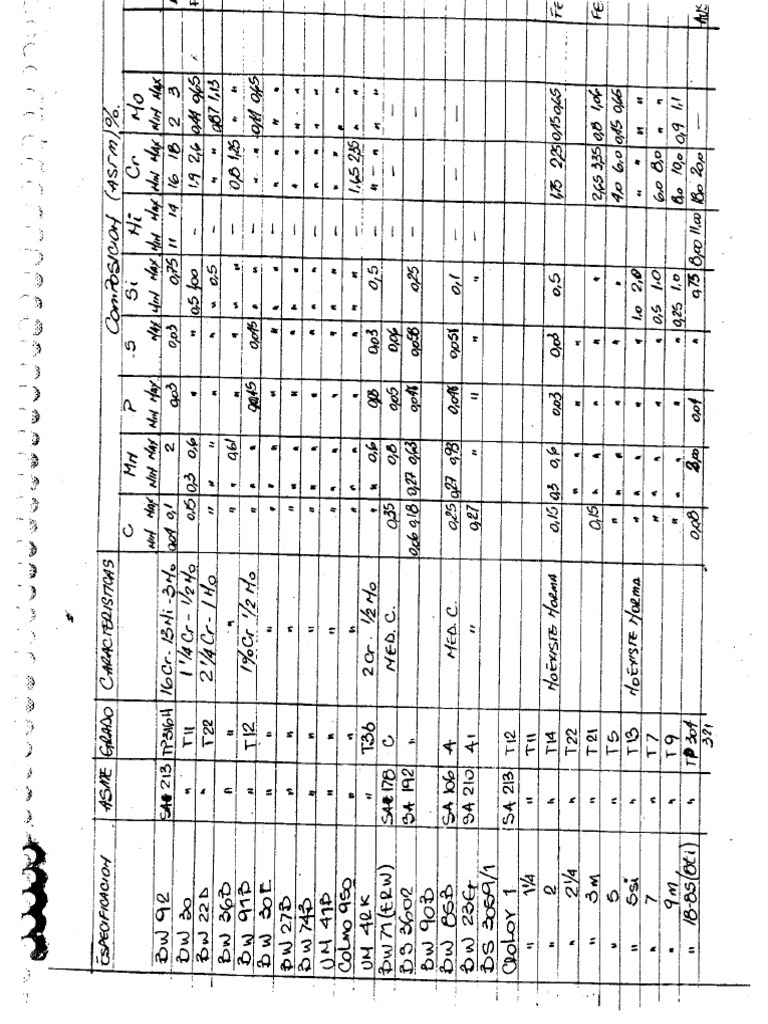 COMPOSICION (ASTM) %.
ESPECIFICACION ASME GRADO CARACTERISTICAS C MN P S Si Ni Cr MO
MIN MAX MIN MAX MIN MAX MAX MIN MAX MIN MAX MIN MAX MIN MAX
BW 92 SA 213 TP316H 16Cr-13Ni-3Mo 0,04 0,1 2 0,03 0,03 0,75 11 14 16 18 2 3
BW 30 " T11 1 1/4 Cr - 1/2 Mo 0,15 0,3 0,6 " " 0,5 1,00 - 1.9 2,6 0,44 0,65
BW 22D " T22 2 1/4 Cr - 1 Mo " " " " " " 0,5 - " " 0,87 1,13
BW 36B " " " " " 0,61 " " " " - 0,8 1,25 " "
BW 91B " T12 1% Cr 1/2 Mo " " " 0,045 0,045 " " - " " 0,44 0,65
BW 30E " " " " " " " " " " - " " " "
BW 27B " " " " " " " " " " - " " " "
BW 74B " " " " " " " " " " - " " " "
UM 41B " " " " " " " " " " - " " " "
COLMO 950 " " " " " " " " " " - 1,65 2,35 " "
UM 42K " T3b 2 Cr. 1/2 Mo " " " 0,6 0,03 0,03 0,5 - " - " " "
BW 71 (ERW) SA 178 C MED. C. 0,35 0,8 0,05 0,06 - - -
BS 3602 SA 192 " 0,06 0,18 0,27 0,63 0,048 0,058 0,25 - - -
BW 90B
BW 85B SA 106 A MED. C. 0,25 0,27 0,93 0,048 0,058 0,1 - - -
BW 23G SA 210 A1 " 0,27 " " " " - - -
BS 3059/1
CROLOY 1 SA 213 T12
" 1 1/4 " T11
" 2 " T14 NO EXISTE NORMA 0,15 0,3 0,6 0.03 0,03 0,5 1,75 2,25 0,45 0,65
" 2 1/4 " T22 " " " " "
" 3M " T21 0,15 " " " " " 2,65 3,35 0,8 1,06
" 5 " T5 " " " " " " 4,0 6,0 0,45 0,65
" 5Si " T13 NO EXISTE NORMA " " " " " 1.0 2,0 " " " "
" 7 " T7 " " " " " 0,5 1.0 6,0 8,0 " "
" 9M " T9 " " " " " 0,25 1.0 8,0 10,0 0,9 1,1
" 18-8S (8Ti) " TP 304 0,08 2,00 0,04 " 0,75 8,00 11,00 18,0 20,0 -
321